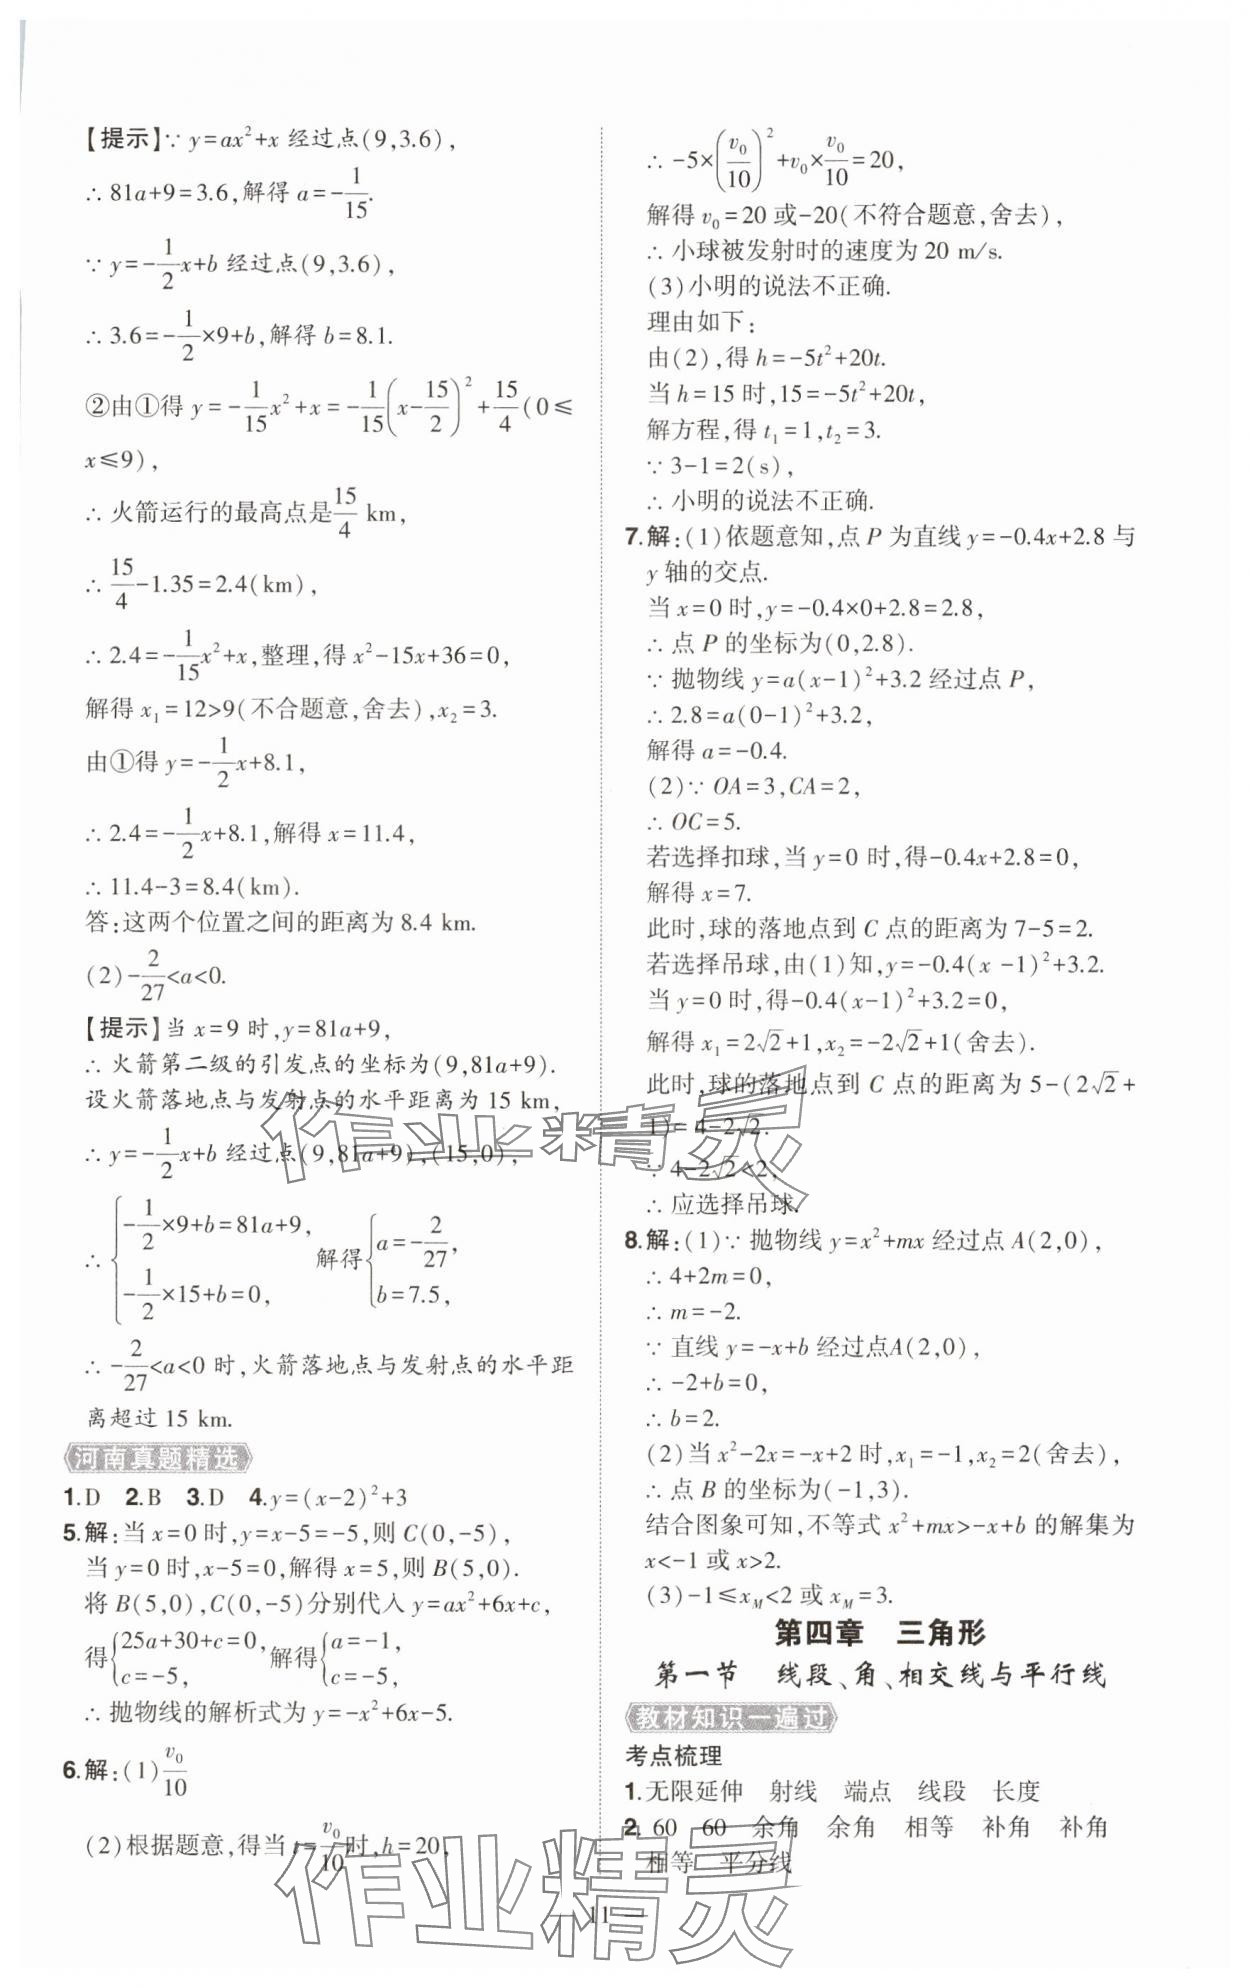 【提示】∵ y=ax²+x 经过点(9,3.6),
∴ 81a+9=3.6,解得 a=-1/15.
∵ y=-1/2x+b 经过点(9,3.6),
∴ 3.6=-1/2×9+b,解得 b=8.1.
②由①得 y=-1/15x²+x=-1/15(x-15/2)²+15/4(0≤
x≤9),
∴ 火箭运行的最高点是15/4 km,
∴ 15/4-1.35=2.4(km),
∴ 2.4=-1/15x²+x,整理,得 x²-15x+36=0,
解得 x₁=12>9(不合题意,舍去),x₂=3.
由①得 y=-1/2x+8.1,
∴ 2.4=-1/2x+8.1,解得 x=11.4,
∴ 11.4-3=8.4(km).
答:这两个位置之间的距离为 8.4 km.
(2)-2/27<a<0.
【提示】当 x=9 时,y=81a+9,
∴ 火箭第二级的引发点的坐标为(9,81a+9).
设火箭落地点与发射点的水平距离为 15 km,
∴ y=-1/2x+b 经过点(9,81a+9),(15,0),
∴ {-1/2×9+b=81a+9, -1/2×15+b=0, 解得{a=-2/27, b=7.5,
∴ -2/27<a<0 时,火箭落地点与发射点的水平距
离超过 15 km.
河南真题精选
1.D 2.B 3.D 4.y=(x-2)²+3
5.解:当 x=0 时,y=x-5=-5,则 C(0,-5),
当 y=0 时,x-5=0,解得 x=5,则 B(5,0).
将 B(5,0),C(0,-5)分别代入 y=ax²+6x+c,
得{25a+30+c=0, c=-5, 解得{a=-1, c=-5,
∴ 抛物线的解析式为 y=-x²+6x-5.
6.解:(1)v₀/10
(2)根据题意,得当 t=v₀/10时,h=20,
∴ -5×(v₀/10)²+v₀×v₀/10=20,
解得 v₀=20 或-20(不符合题意,舍去),
∴ 小球被发射时的速度为 20 m/s.
(3)小明的说法不正确.
理由如下:
由(2),得 h=-5t²+20t.
当 h=15 时,15=-5t²+20t,
解方程,得 t₁=1,t₂=3.
∵ 3-1=2(s),
∴ 小明的说法不正确.
7.解:(1)依题意知,点 P 为直线 y=-0.4x+2.8 与
y 轴的交点.
当 x=0 时,y=-0.4×0+2.8=2.8,
∴ 点 P 的坐标为(0,2.8).
∵ 抛物线 y=a(x-1)²+3.2 经过点 P,
∴ 2.8=a(0-1)²+3.2,
解得 a=-0.4.
(2)∵ OA=3,CA=2,
∴ OC=5.
若选择扣球,当 y=0 时,得-0.4x+2.8=0,
解得 x=7.
此时,球的落地点到 C 点的距离为 7-5=2.
若选择吊球,由(1)知,y=-0.4(x -1)²+3.2.
当 y=0 时,得-0.4(x-1)²+3.2=0,
解得 x₁=2√2+1,x₂=-2√2+1(舍去).
此时,球的落地点到 C 点的距离为 5-(2√2+
1)=4-2√2.
∵ 4-2√2<2,
∴ 应选择吊球.
8.解:(1)∵ 抛物线 y=x²+mx 经过点 A(2,0),
∴ 4+2m=0,
∴ m=-2.
∵ 直线 y=-x+b 经过点A(2,0),
∴ -2+b=0,
∴ b=2.
(2)当 x²-2x=-x+2 时,x₁=-1,x₂=2(舍去),
∴ 点 B 的坐标为(-1,3).
结合图象可知,不等式 x²+mx>-x+b 的解集为
x<-1 或 x>2.
(3)-1≤x_M<2 或 x_M=3.
第四章 三角形
第一节 线段、角、相交线与平行线
教材知识一遍过
考点梳理
1.无限延伸 射线 端点 线段 长度
2. 60 60 余角 余角 相等 补角 补角
相等 平分线
— 11 —
作业精灵
作业精灵